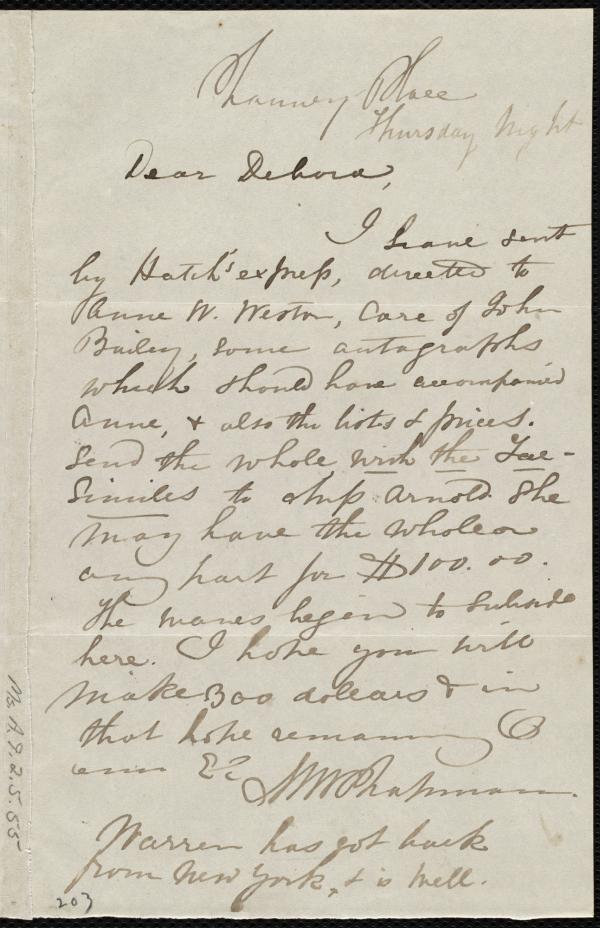 Chauncy Place
Thursday Night
Dear Debora,
I have sent
by Hatch's express, directed to
Anne W. Weston, Care of John
Bailey, some autographs
which should have accompanied
Anne, & also the lists & prices.
Send the whole, with the Fac-
Similes to Mrs Arnold. She
may have the whole or
any part for $100.00.
The waves begin to subside
here. I hope you will
make 300 dollars & in
that hope remaining
&c
M W Chapman.
Warren has got back
from New York, & is well.
203
Ms. A. 9. 2. 5. 55